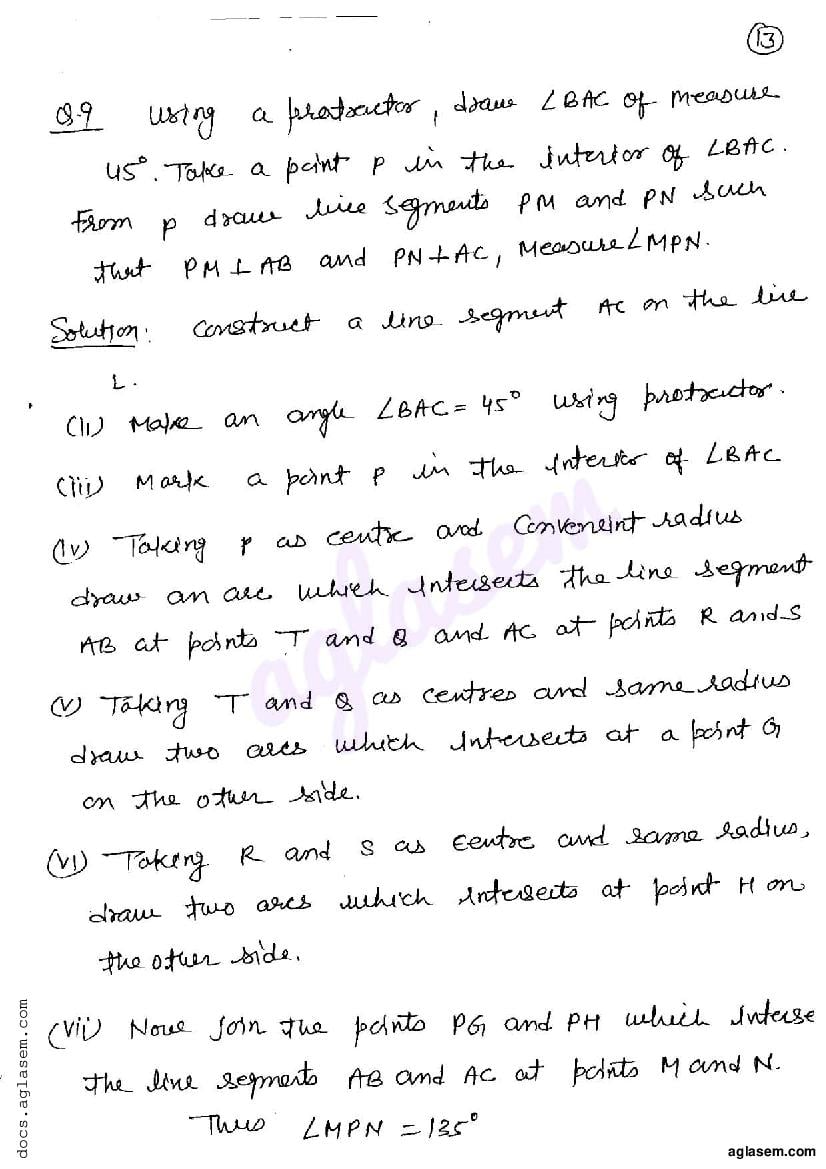 13
Q.9 Using a protractor, draw ∠BAC of measure
45°. Take a point P in the interior of ∠BAC.
From P draw line segments PM and PN such
that PM ⊥ AB and PN ⊥ AC, Measure ∠MPN.
Solution: Construct a line segment AC on the line
L.
(ii) Make an angle ∠BAC = 45° using protractor.
(iii) Mark a point P in the interior of ∠BAC
(iv) Taking P as centre and Conveneint radius
draw an arc which intersects the line segment
AB at points T and Q and AC at points R and S
(v) Taking T and Q as centres and same radius
draw two arcs which intersects at a point G
on the other side.
(vi) Taking R and S as centre and same radius,
draw two arcs which intersects at point H on
the other side.
(vii) Now join the points PG and PH which interse
the line segments AB and AC at points M and N.
Thus ∠MPN = 135°
aglasem
docs.aglasem.com
aglasem.com